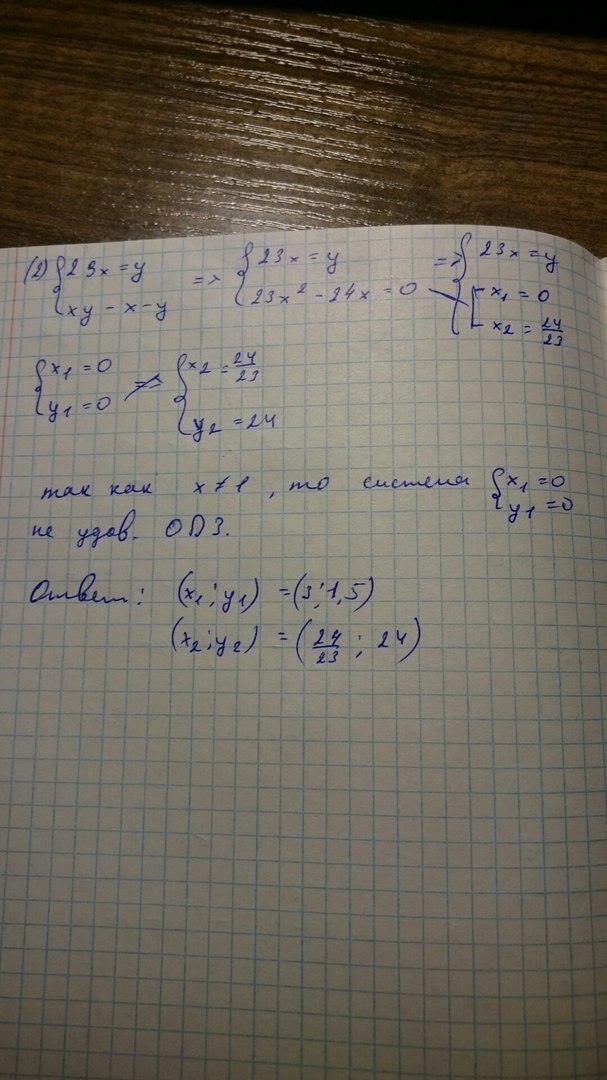 (2) { 23x = y => { 23x = y => { 23x = y
xy - x - y 23x² - 24x = 0 [ x₁ = 0
x₂ = 24/23
{ x₁ = 0 { x₂ = 24/23
y₁ = 0 y₂ = 24
так как x ≠ 1, то система { x₁ = 0
y₁ = 0
не удов. ОДЗ.
Ответ: (x₁; y₁) = (3; 1,5)
(x₂; y₂) = (24/23; 24)